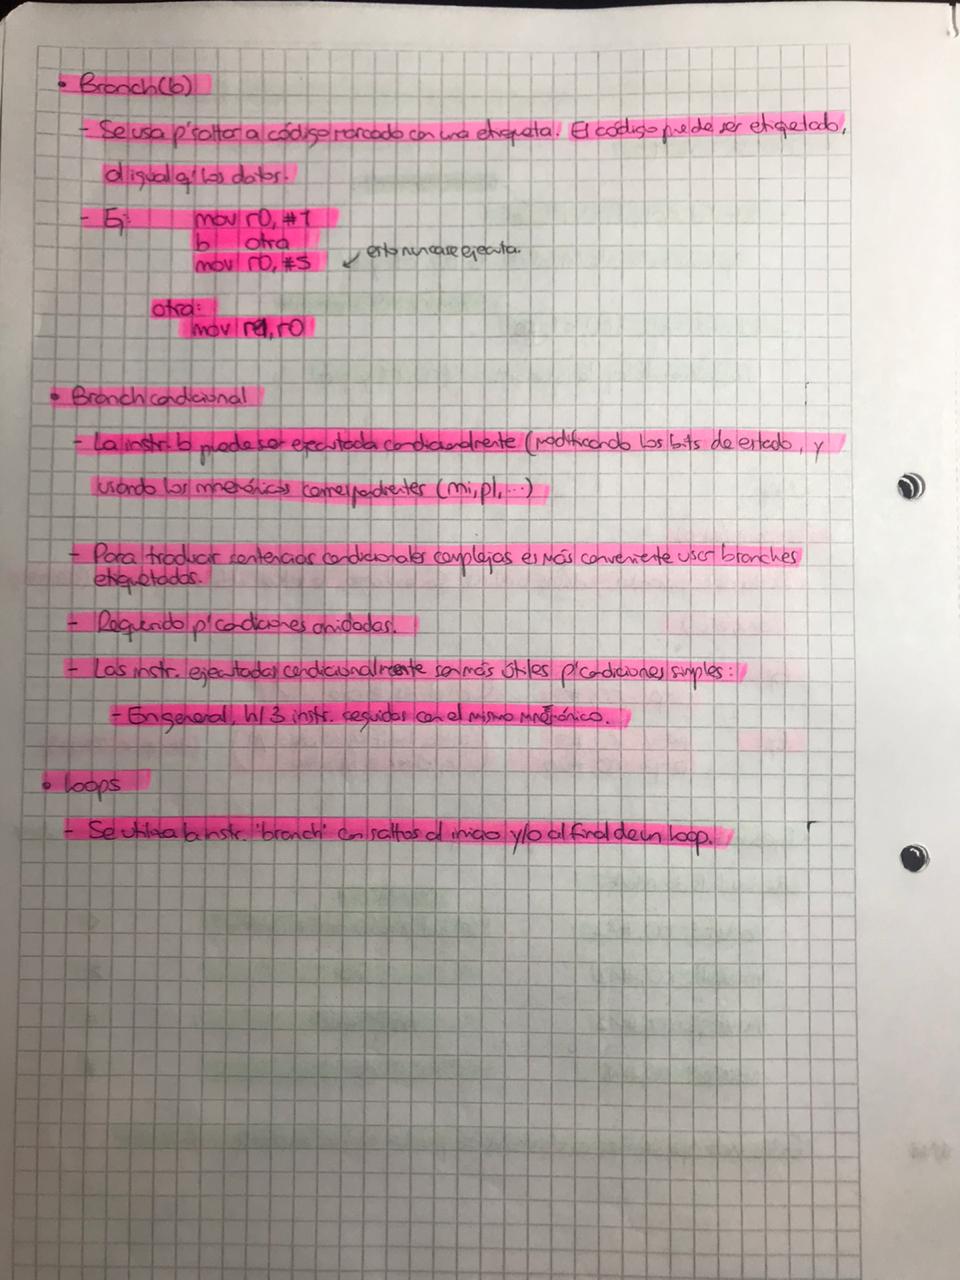 • Branch (b)
- Se usa p' saltar a código marcado con una etiqueta. El código puede ser etiquetado,
al igual q' los datos.
- Ej: mov r0, #1
b otra
mov r0, #5 ↙ esto nunca se ejecuta.
otra:
mov r1, r0
• Branch condicional
- La instr. b puede ser ejecutada condicionalmente (modificando los bits de estado, y
usando los mnemónicos correspondientes (mi, pl, ...)
- Para traducir sentencias condicionales complejas es más conveniente usar branches
etiquetados.
- Requerido p' condiciones anidadas.
- Las instr. ejecutadas condicionalmente son más útiles p' condiciones simples:
- En general, h/ 3 instr. seguidas con el mismo mnemónico.
• Loops
- Se utiliza la instr. 'branch' con saltos al inicio y/o al final de un loop.